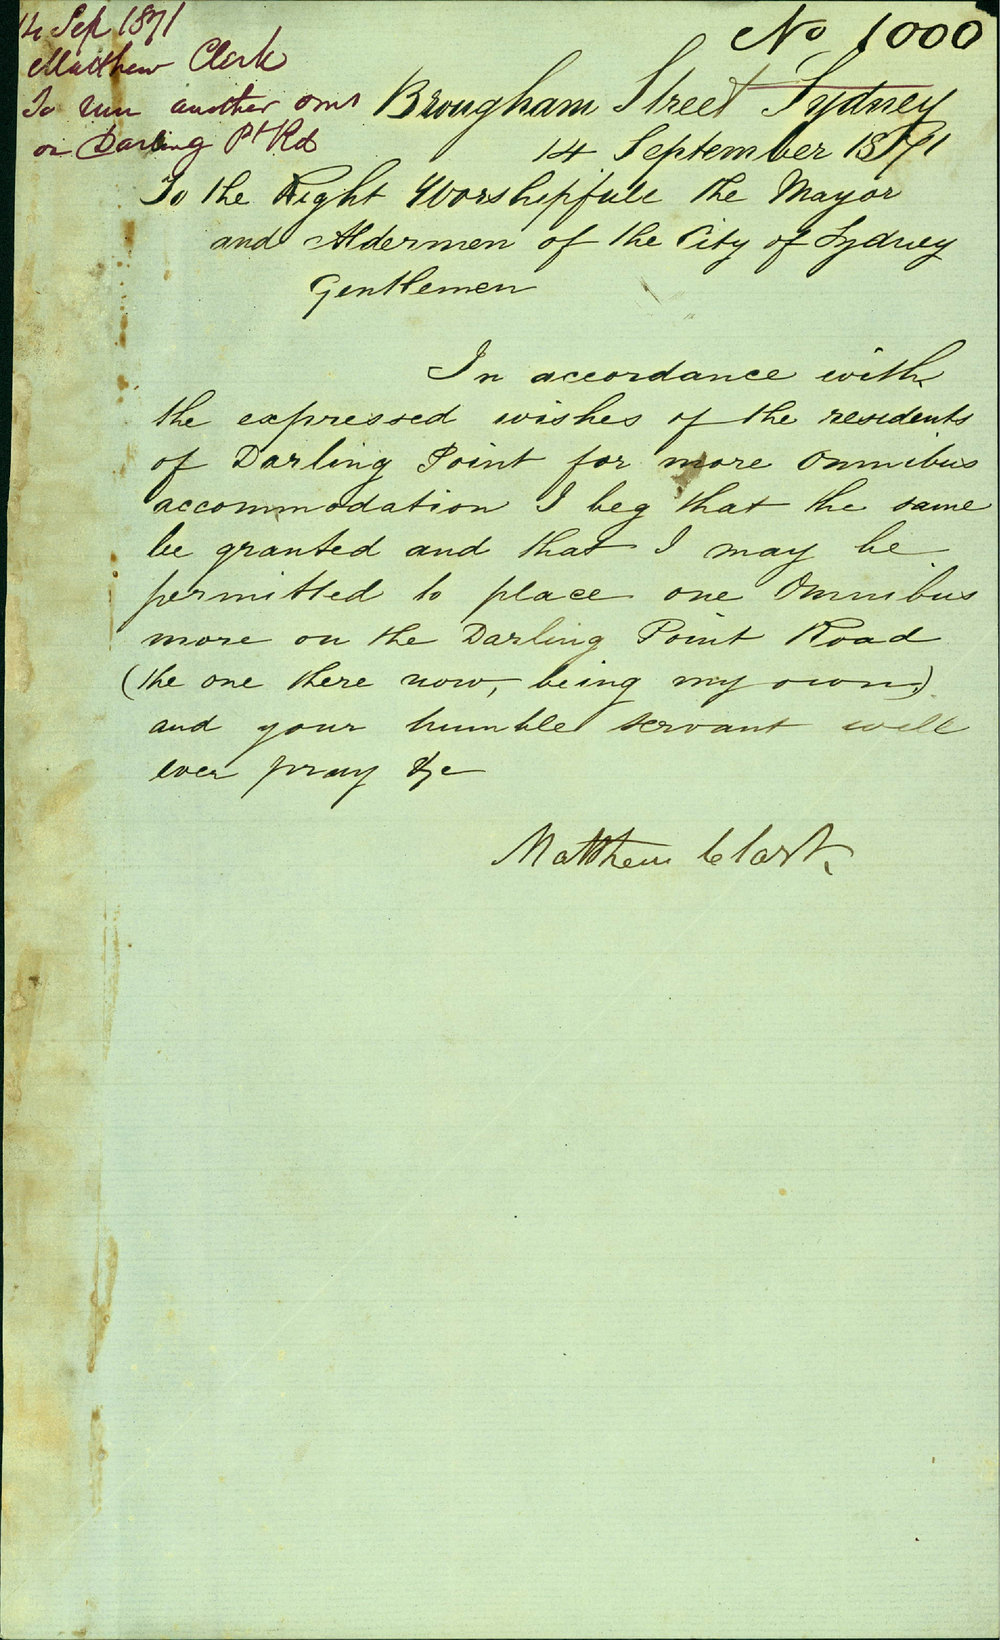 No 1000
14 Sep 1871
Matthew Clark
To run another omns
on Darling Pt Rd
Brougham Street Sydney
14 September 1871
To the Right Worshipfull the Mayor
and Aldermen of the City of Sydney
Gentlemen
In accordance with
the expressed wishes of the residents
of Darling Point for more Omnibus
accommodation I beg that the same
be granted and that I may be
permitted to place one Omnibus
more on the Darling Point Road
(the one there now, being my own)
and your humble servant will
ever pray &c
Matthew Clark.